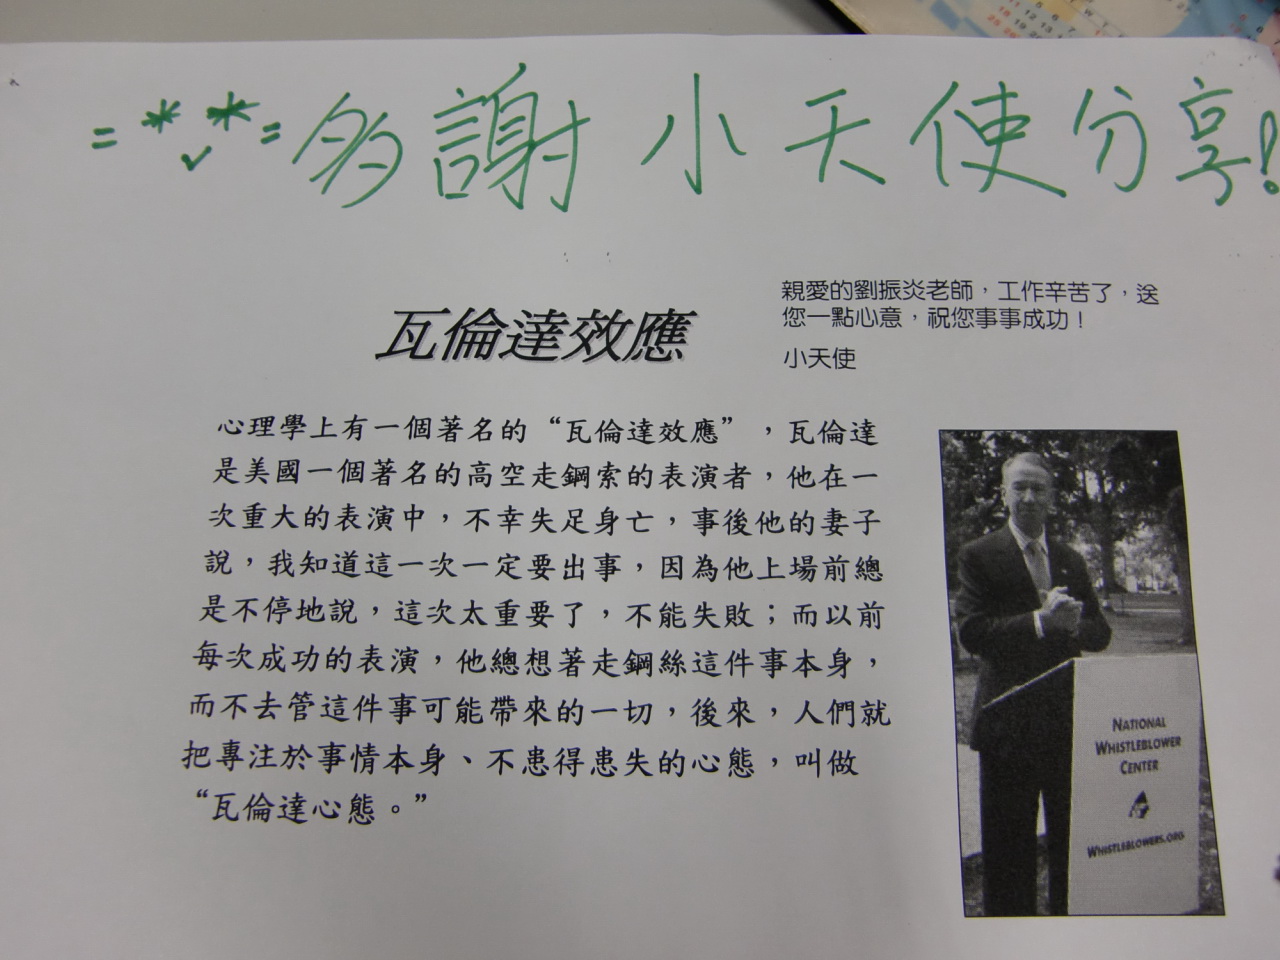 =*ˇ*=多謝小天使分享!
親愛的劉振炎老師，工作辛苦了，送
您一點心意，祝您事事成功！
小天使
瓦倫達效應
心理學上有一個著名的“瓦倫達效應”，瓦倫達
是美國一個著名的高空走鋼索的表演者，他在一
次重大的表演中，不幸失足身亡，事後他的妻子
說，我知道這一次一定要出事，因為他上場前總
是不停地說，這次太重要了，不能失敗；而以前
每次成功的表演，他總想著走鋼絲這件事本身，
而不去管這件事可能帶來的一切，後來，人們就
把專注於事情本身、不患得患失的心態，叫做
“瓦倫達心態。”
NATIONAL
WHISTLEBLOWER
CENTER
WHISTLEBLOWERS.ORG